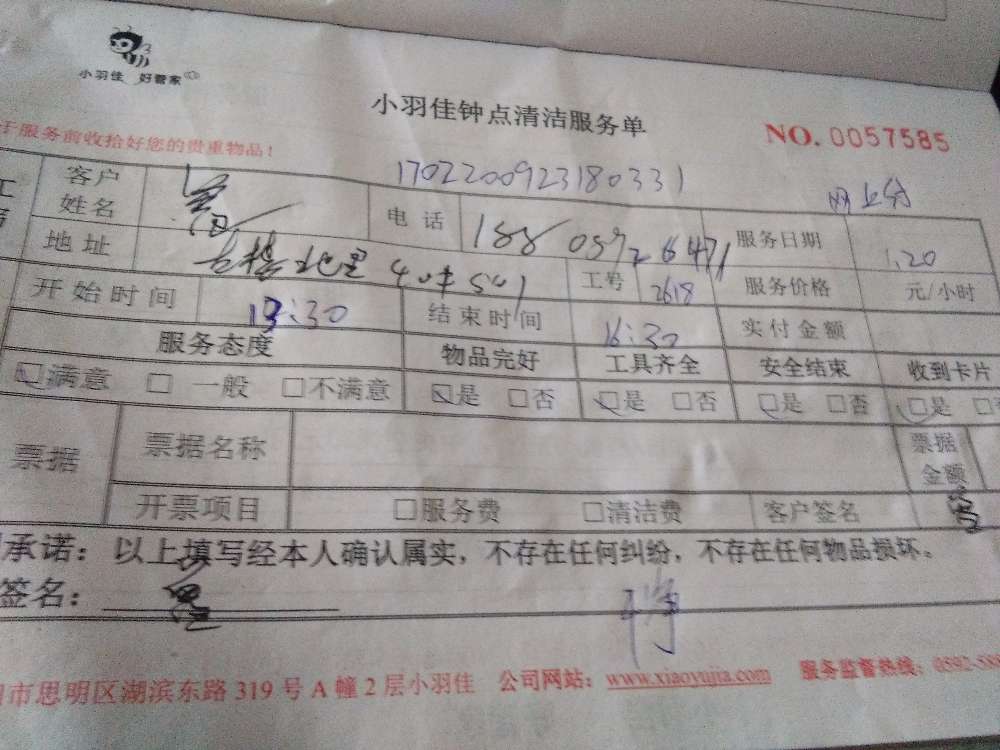 小羽佳 好管家
小羽佳钟点清洁服务单
NO. 0057585
于服务前收拾好您的贵重物品!
1702200923180331
客户姓名 电话 服务日期 1.20
地址 工号 2618 服务价格 元/小时
开始时间 13:30 结束时间 16:30 实付金额
服务态度 物品完好 工具齐全 安全结束 收到卡片
☑满意 □ 一般 □不满意 ☑是 □否 ☑是 □否 ☑是 □否 ☑是
票据 票据名称 票据金额
开票项目 □服务费 □清洁费 客户签名
承诺：以上填写经本人确认属实，不存在任何纠纷，不存在任何物品损坏。
签名：
市思明区湖滨东路 319 号 A 幢 2 层小羽佳 公司网站：www.xiaoyujia.com 服务监督热线：0592-588